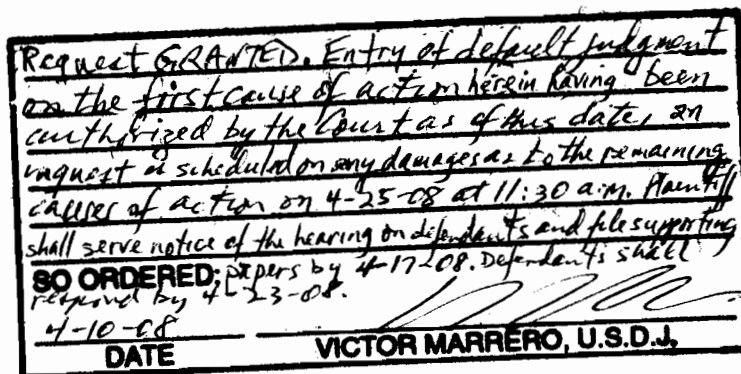 Request GRANTED. Entry of default judgment
on the first cause of action herein having been
authorized by the Court as of this date, an
inquest is scheduled on any damages as to the remaining
causes of action on 4-25-08 at 11:30 a.m. Plaintiff
shall serve notice of the hearing on defendants and file supporting
SO ORDERED: papers by 4-17-08. Defendants shall
respond by 4-23-08.
4-10-08
DATE VICTOR MARRERO, U.S.D.J.